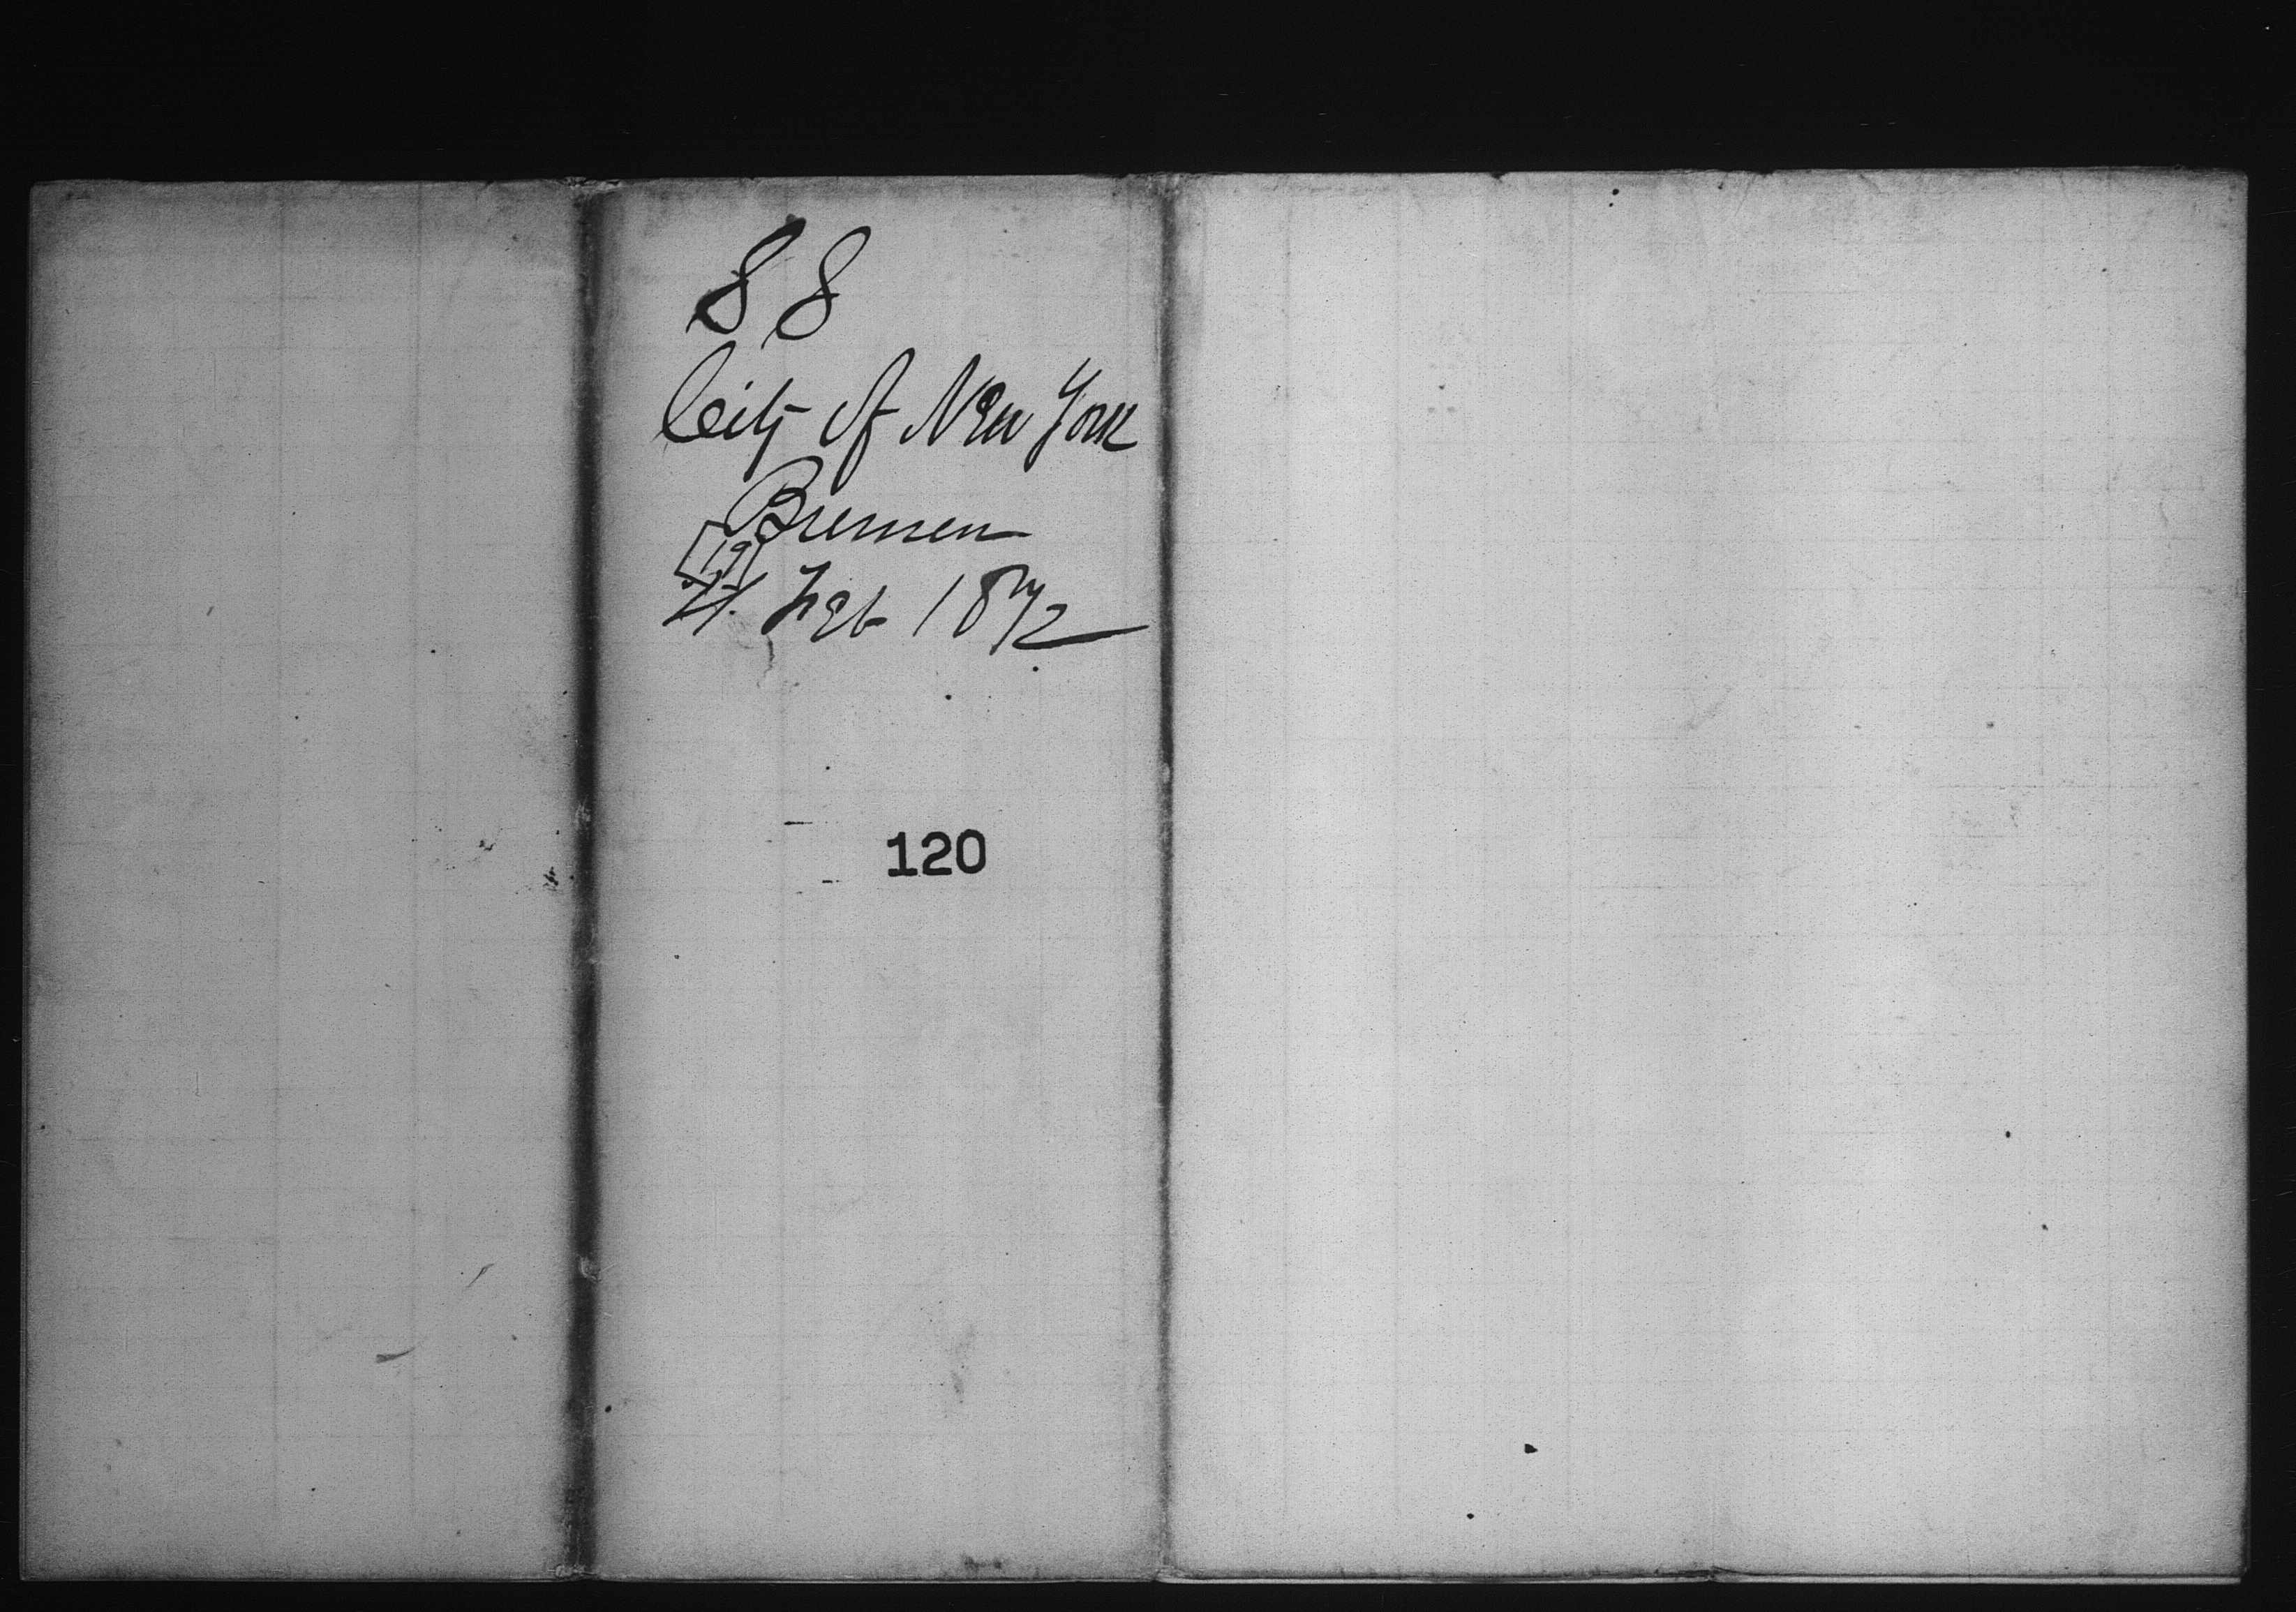 88
City of New York
Bremen
[19]
Feb 1872
120